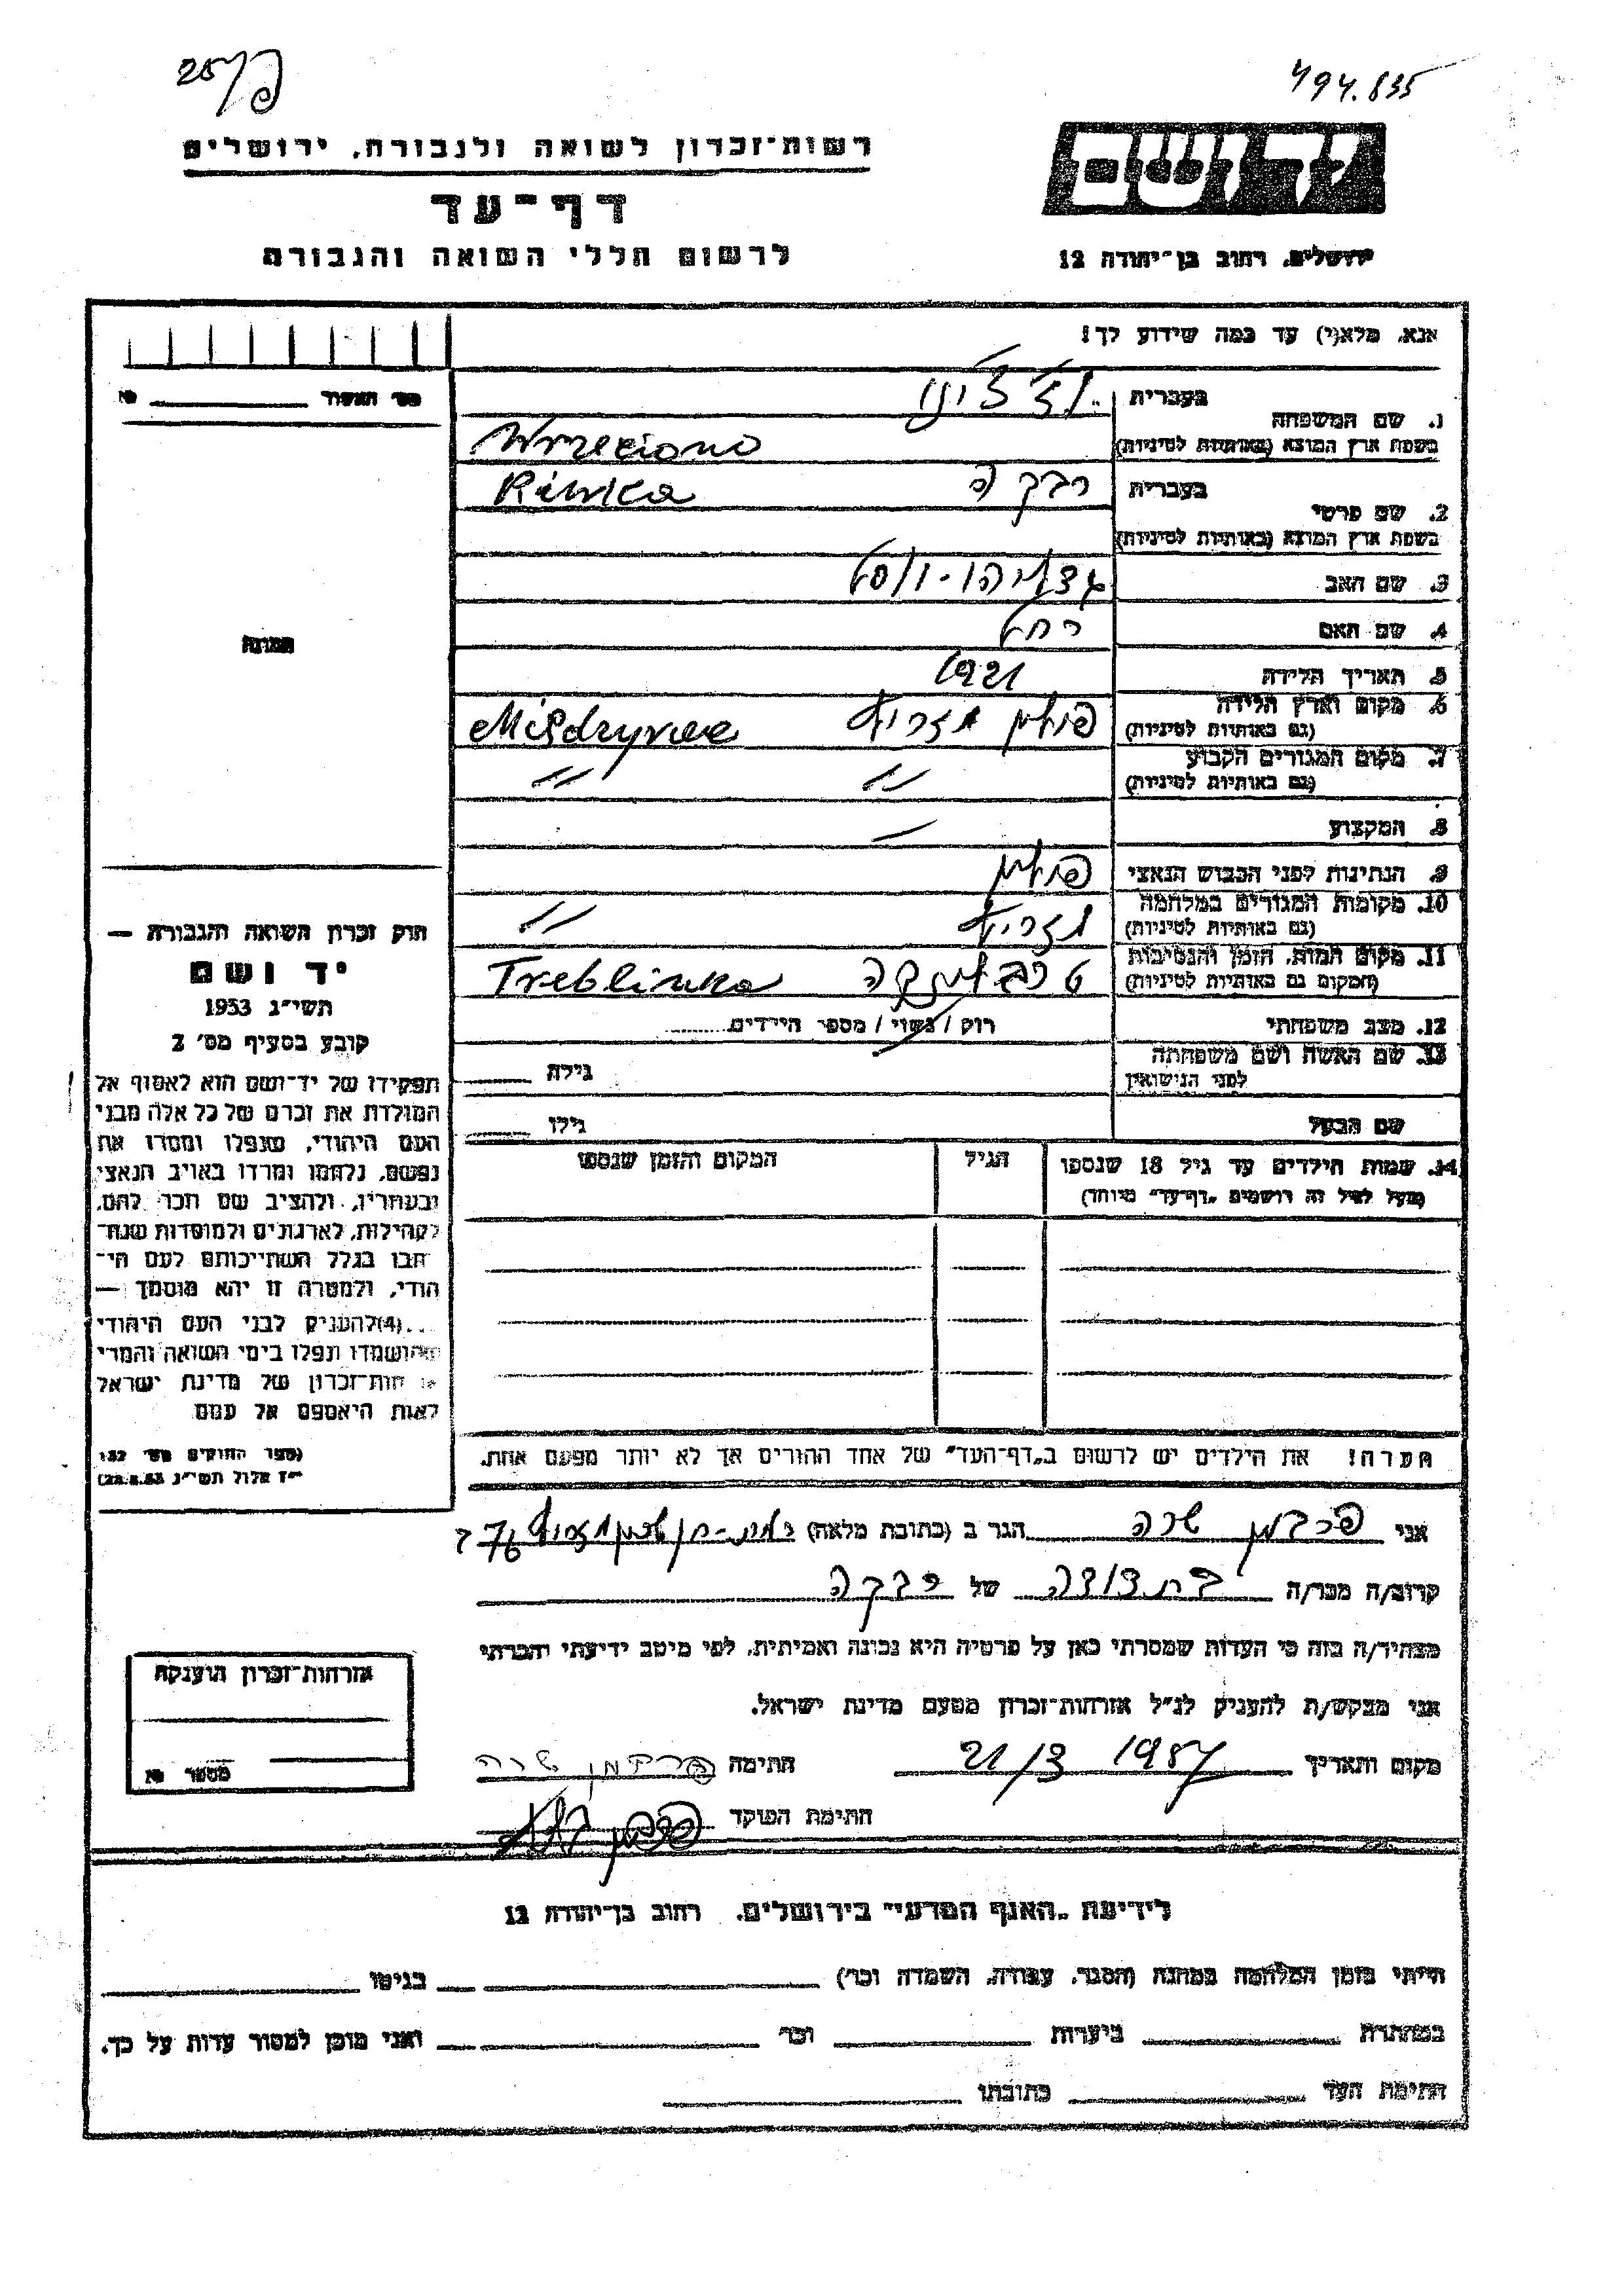 494.835
רשות־זכרון לשואה ולגבורה, ירושלים
דף־עד
לרשום חללי השואה והגבורה
ירושלים, רחוב בן־יהודה 12
אנא, מלא(י) עד כמה שידוע לך!
מס' האשור №
1. שם המשפחה
בעברית
בשפת ארץ המוצא (באותיות לטיניות) Wrzeciono
2. שם פרטי
בעברית רבקה Riwka
בשפת ארץ המוצא (באותיות לטיניות)
3. שם האב
4. שם האם רחל
5. תאריך הלידה 1921
6. מקום וארץ הלידה פולין
(גם באותיות לטיניות)
7. מקום המגורים הקבוע
(גם באותיות לטיניות) 〃 〃
8. המקצוע —
9. הנתינות לפני הכבוש הנאצי פולין
10. מקומות המגורים במלחמה 〃
(גם באותיות לטיניות)
11. מקום המות, הזמן והנסיבות טרבלינקה Treblinka
(המקום גם באותיות לטיניות)
12. מצב משפחתי רוק / נשוי / מספר הילדים
13. שם האשה ושם משפחתה גילה
לפני הנישואין
שם הבעל גילו
14. שמות הילדים עד גיל 18 שנספו הגיל המקום והזמן שנספו
(מעל לגיל זה רושמים „דף־עד" מיוחד)
הערה! את הילדים יש לרשום ב„דף־העד" של אחד ההורים אך לא יותר מפעם אחת.
תמונה
חוק זכרון השואה והגבורה —
יד ושם
תשי"ג 1953
קובע בסעיף מס' 2
תפקידו של יד־ושם הוא לאסוף אל
המולדת את זכרם של כל אלה מבני
העם היהודי, שנפלו ומסרו את
נפשם, נלחמו ומרדו באויב הנאצי
ובעוזריו, ולהציב שם וזכר להם,
לקהילות, לארגונים ולמוסדות שנח־
רבו בגלל השתייכותם לעם הי־
הודי, ולמטרה זו יהא מוסמך —
...(4)להעניק לבני העם היהודי
שהושמדו ונפלו בימי השואה והמרי
אזרחות־זכרון של מדינת ישראל
לאות היאספם אל עמם
(ספר החוקים מס' 132
י"ז אלול תשי"ג 28.8.53)
אני פרבמן שרה הגר ב (כתובת מלאה)
קרוב/ה מכר/ה בת דודה של רבקה
מצהיר/ה בזה כי העדות שמסרתי כאן על פרטיה היא נכונה ואמיתית, לפי מיטב ידיעתי והכרתי
אני מבקש/ת להעניק לנ"ל אזרחות־זכרון מטעם מדינת ישראל.
מקום ותאריך 21/3 1957 חתימה פרבמן שרה
חתימת הפוקד
אזרחות־זכרון הוענקה
מספר №
לידיעת „האגף המדעי" בירושלים, רחוב בן־יהודה 12
הייתי בזמן המלחמה במחנה (הסגר, עבודה, השמדה וכו') בגיטו
במחתרת ביערות וכו' ואני מוכן למסור עדות על כך.
חתימת העד כתובתו